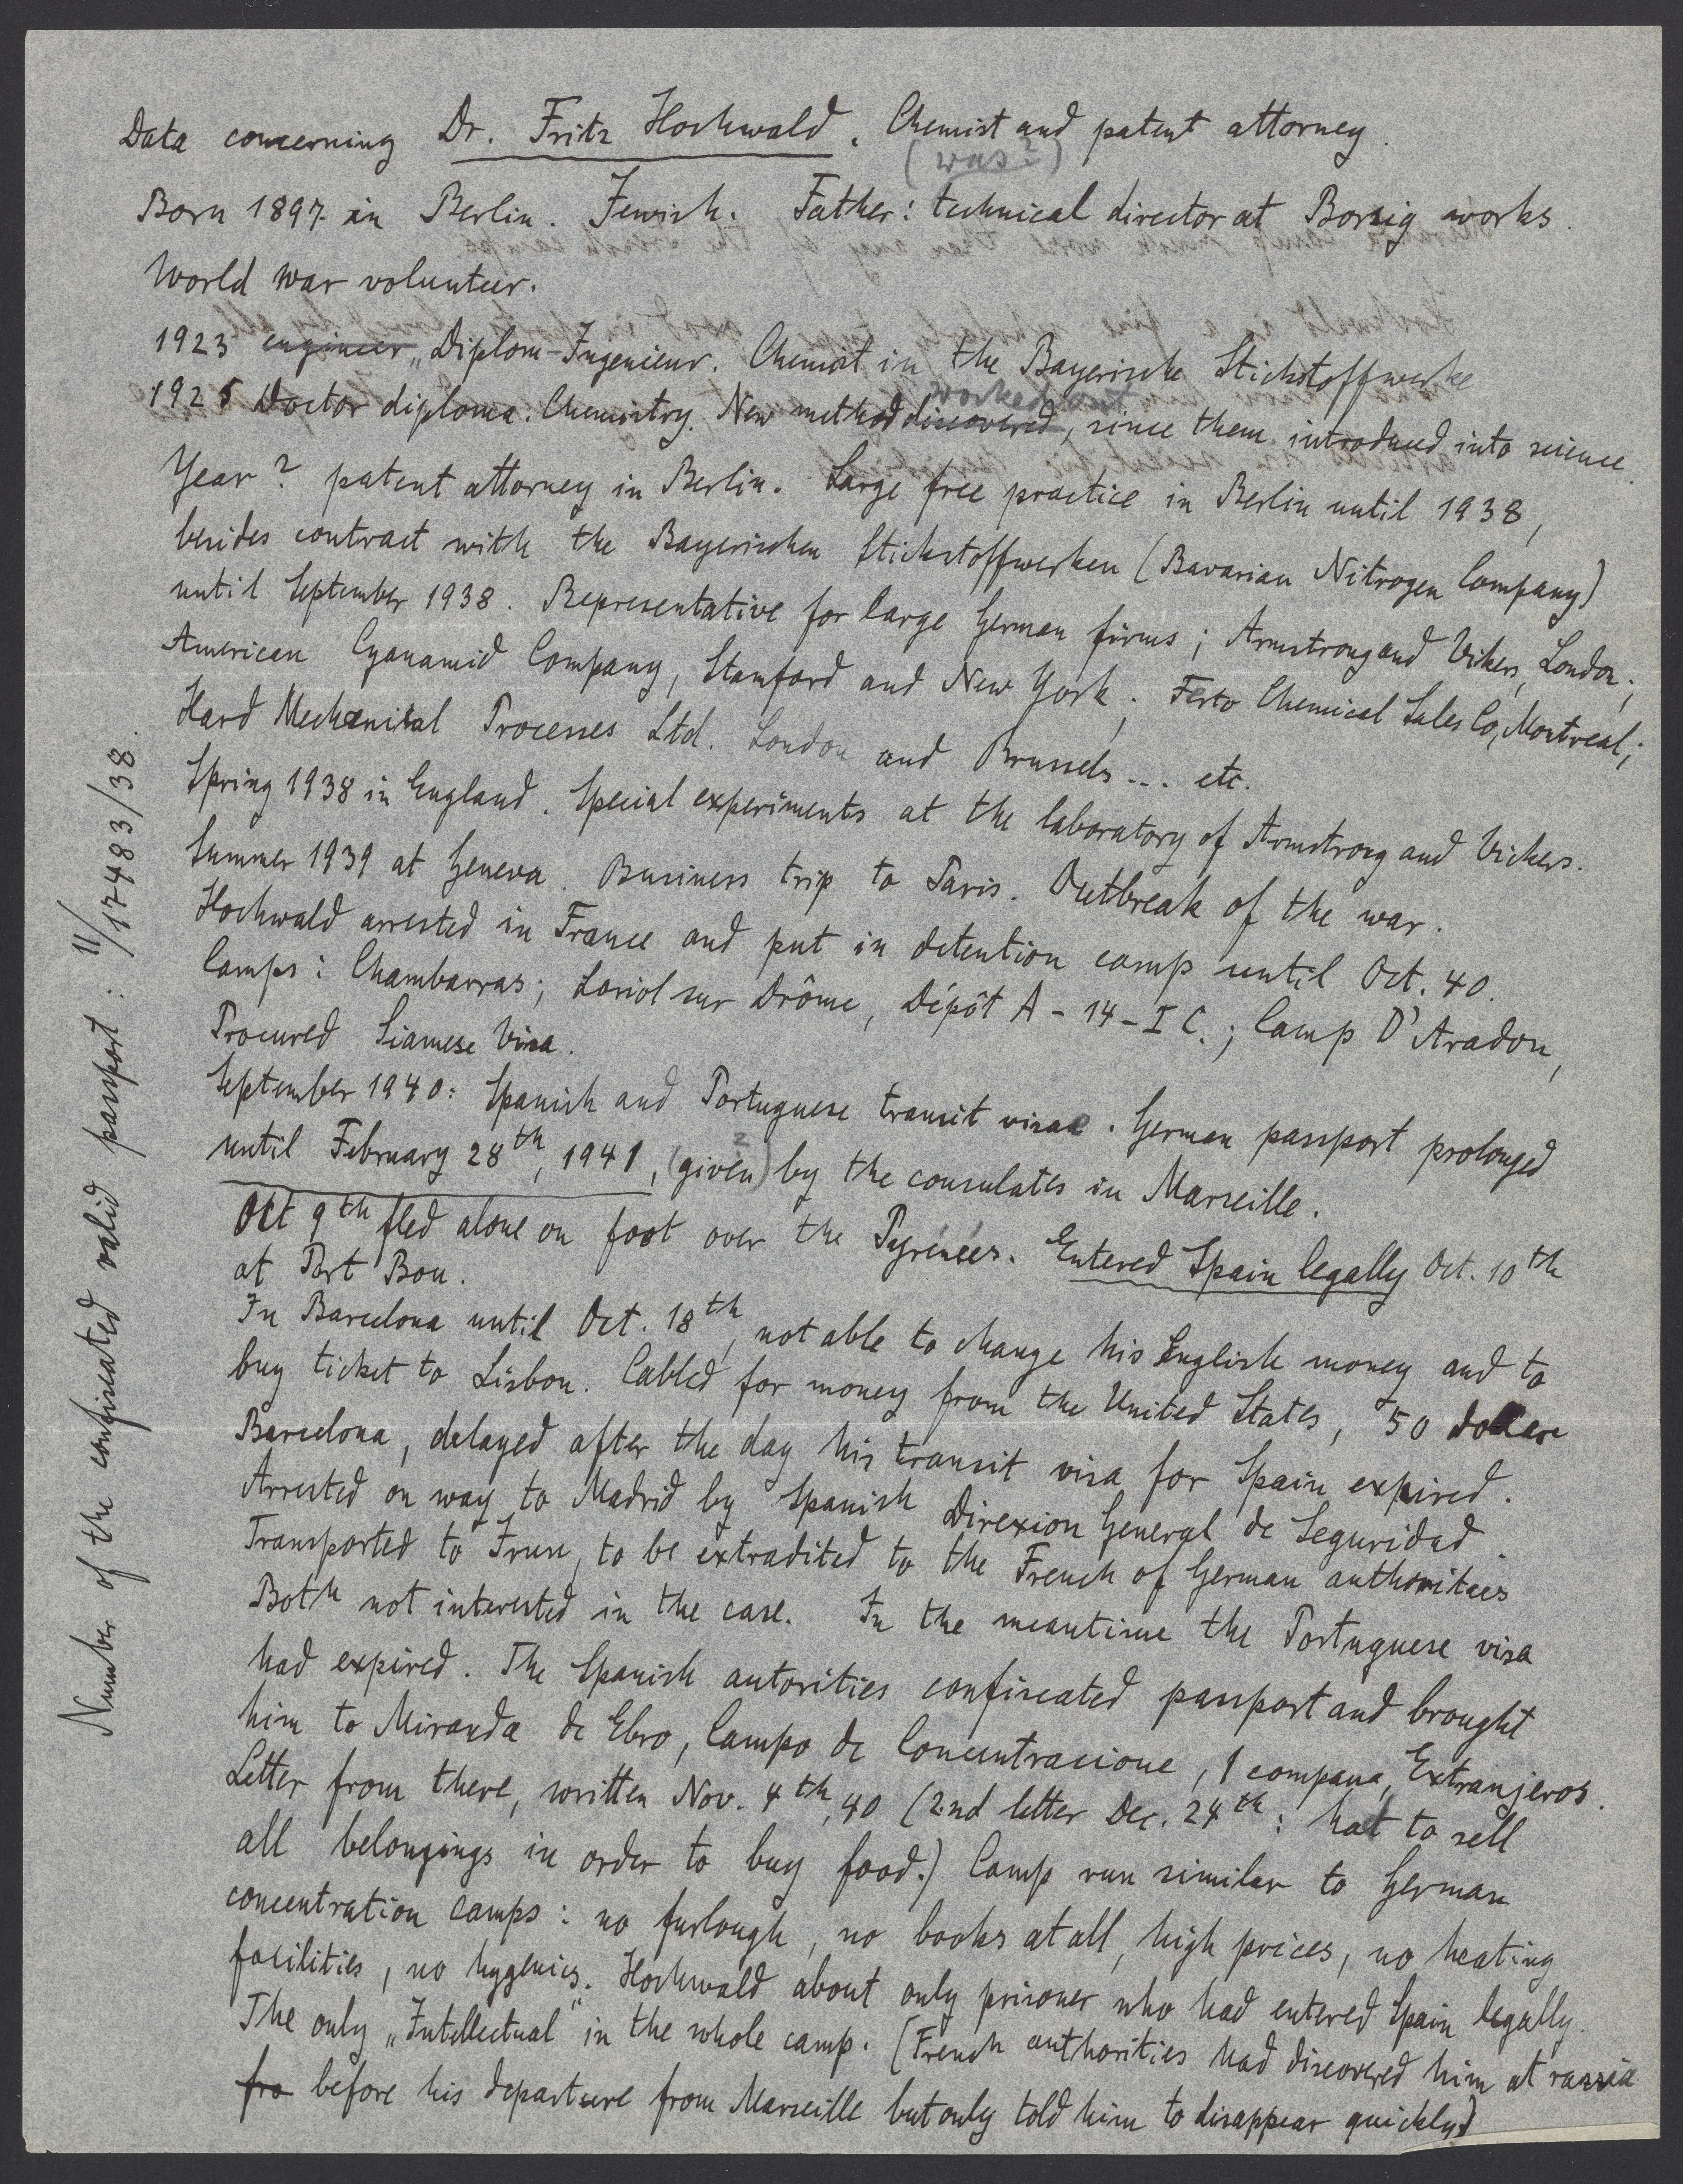 Data concerning Dr. Fritz Hochwald. Chemist and patent attorney.
(was?)
Born 1897 in Berlin. Jewish. Father: technical director at Borsig works.
World war volunteer.
1923 engineer „Diplom-Ingenieur. Chemist in the Bayerische Stickstoffwerke
worked out
1925 Doctor diploma. Chemistry. New method discovered, since them introduced into science.
Year? patent attorney in Berlin. Large free practice in Berlin until 1938,
besides contract with the Bayerischen Stickstoffwerken (Bavarian Nitrogen Company)
until September 1938. Representative for large German firms; Armstrong and Vikers, London;
American Cyanamid Company, Stamford and New York; Festo Chemical Sales Co, Montreal;
Hard Mechanical Processes Ltd. London and Brussels... etc.
Spring 1938 in England. Special experiments at the laboratory of Armstrong and Vickers.
Summer 1939 at Geneva. Business trip to Paris. Outbreak of the war.
Hochwald arrested in France and put in detention camp until Oct. 40.
Camps: Chambarras; Loriol sur Drôme, Dépôt A-14-I C.; Camp D'Aradon,
Procured Siamese Visa.
September 1940: Spanish and Portuguese transit visae. German passport prolonged
until February 28th, 1941, (given) by the consulates in Marseille.
Oct 9th fled alone on foot over the Pyrénées. Entered Spain legally Oct. 10th
at Port Bou.
In Barcelona until Oct. 18th, not able to change his English money and to
buy ticket to Lisbon. Cabled for money from the United States, 50 dollars
Barcelona, delayed after the day his transit visa for Spain expired.
Arrested on way to Madrid by Spanish Direxion General de Seguridad.
Transported to Irun, to be extradited to the French of German authorities
Both not interested in the case. In the meantime the Portuguese visa
had expired. The Spanish autorities confiscated passport and brought
him to Miranda de Ebro, Campo de Concentracione, 1 compana, Extranjeros.
Letter from there, written Nov. 4th, 40 (2nd letter Dec. 24th: hat to sell
all belongings in order to buy food.) Camp run similar to German
concentration camps: no furlough, no books at all, high prices, no heating
facilities, no hygenics. Hochwald about only prisoner who had entered Spain legally.
The only „Intellectual" in the whole camp. (French authorities had discovered him at razzia
fro before his departure from Marseille but only told him to disappear quickly.)
Number of the confiscated valid passport: 11/17483/38.